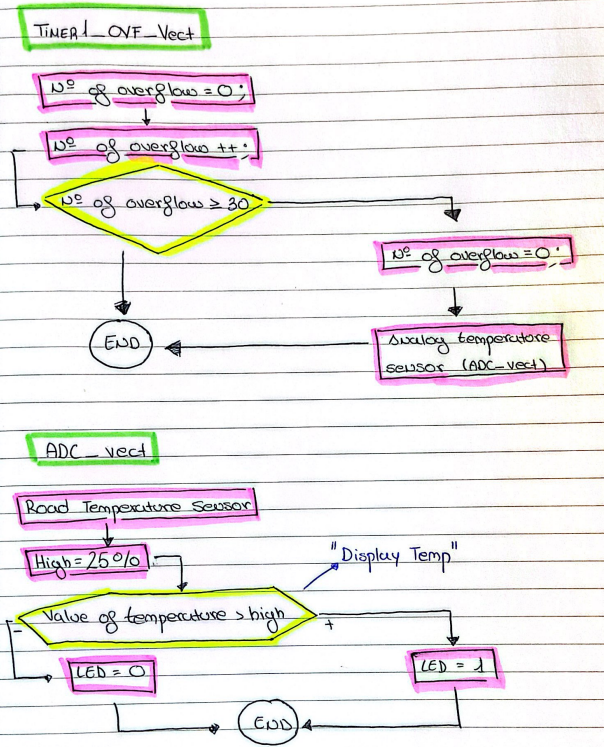 TIMER1_OVF_Vect
Nº of overflow = 0;
Nº of overflow ++;
Nº of overflow ≥ 30
Nº of overflow = 0;
Analog temperature
sensor (ADC_vect)
END
ADC_vect
Road Temperature Sensor
High = 25%
"Display Temp"
Value of temperature > high
-
+
LED = 0
LED = 1
END